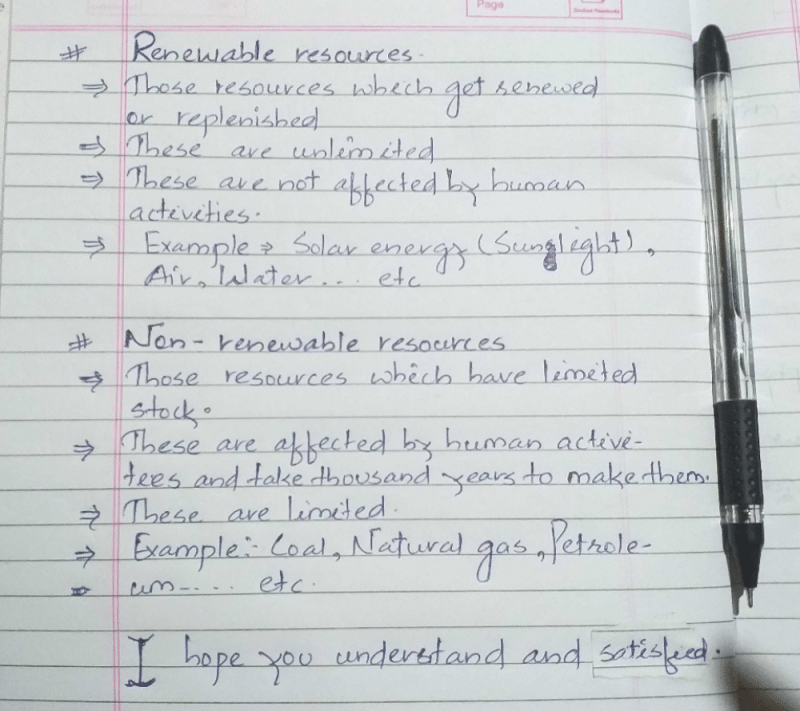 Page
# Renewable resources.
⇒ Those resources which get renewed
or replenished
⇒ These are unlimited
⇒ These are not affected by human
activities.
⇒ Example ⇒ Solar energy (Sunlight),
Air, Water.... etc
# Non-renewable resources
⇒ Those resources which have limited
stock.
⇒ These are affected by human activi-
tees and take thousand years to make them.
⇒ These are limited.
⇒ Example:- Coal, Natural gas, Petrole-
⇒ um-.... etc.
I hope you understand and satisfied.